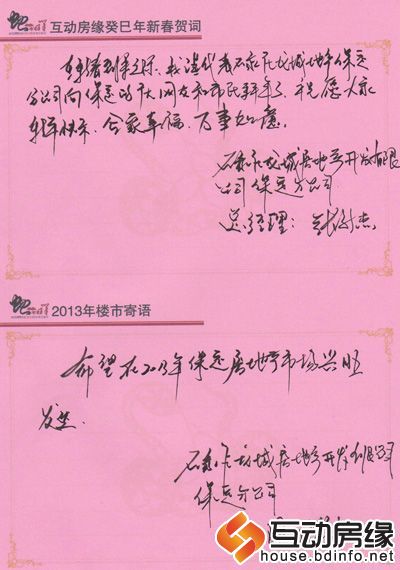 互动房缘癸巳年新春贺词
新春到来之际，我谨代表石家庄龙城地产保定
分公司向保定的广大网友和市民拜年了，祝愿大家
新年快乐，合家幸福，万事如意。
石家庄龙城房地产开发有限
公司保定分公司
总经理：
2013年楼市寄语
希望在2013年保定房地产市场兴旺
发达。
石家庄龙城房地产开发有限公司
保定分公司
互动房缘
house.bdinfo.net